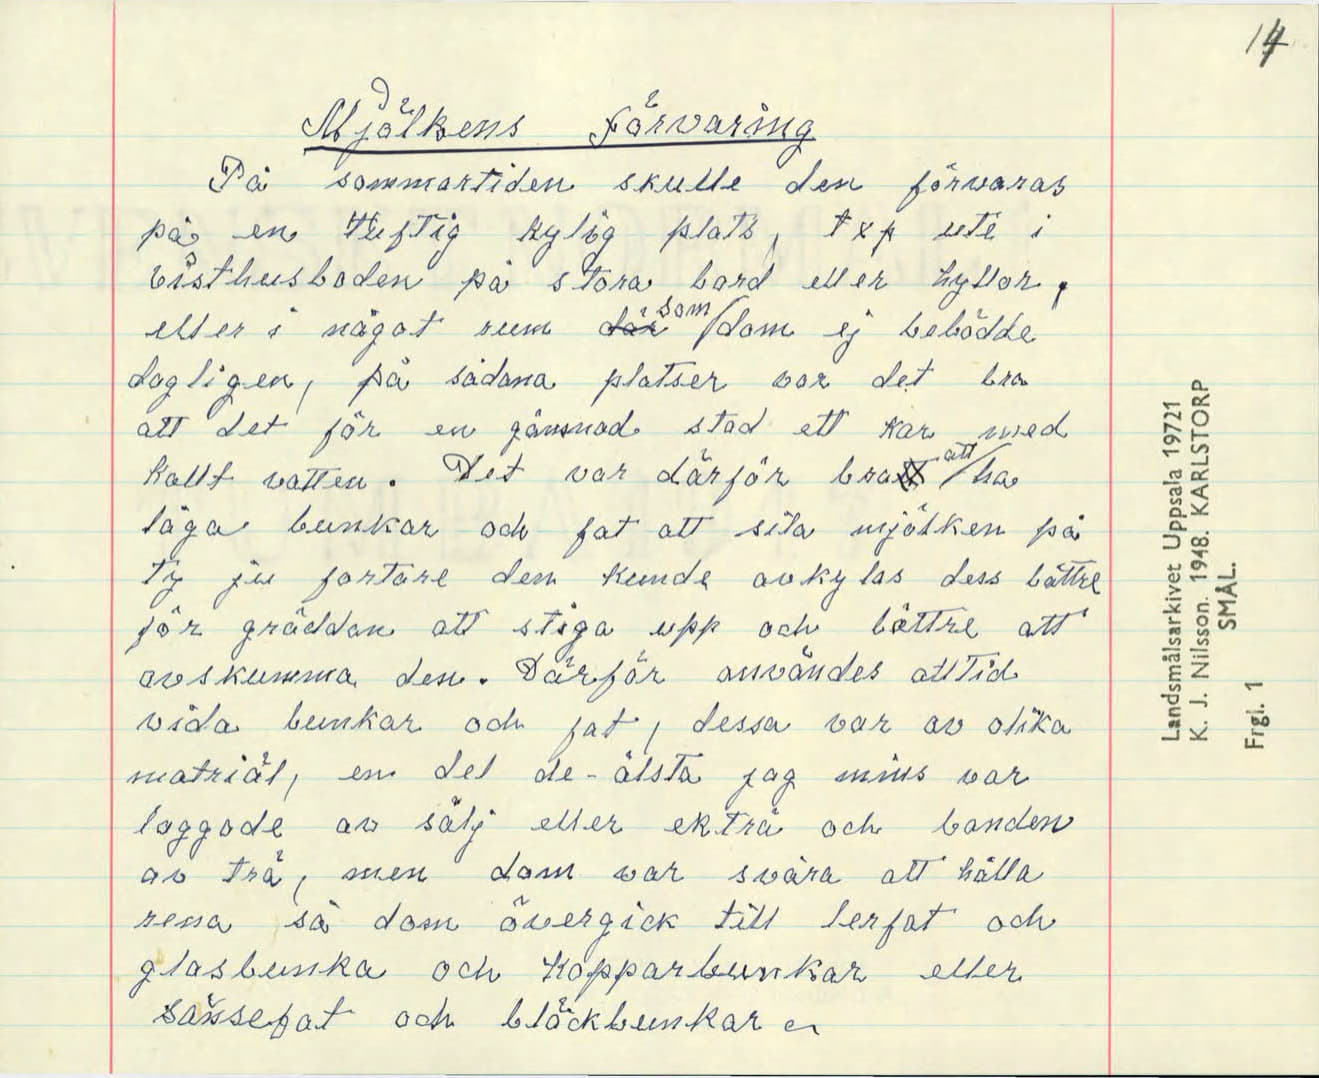 14
Mjölkens Förvaring
På sommartiden skulle den förvaras
på en luftig kylig plats, t x p ute i
visthusboden på stora bord eller hyllor,
eller i något rum som dom ej bebodde
dagligen, på sådana platser var det bra
att det för en gämnad stad ett kar med
kallt vatten. Det var därför bra att ha
låga bunkar och fat att sila mjölken på
ty ju fortare den kunde avkylas dess bättre
för gräddan att stiga upp och bättre att
avskumma den. Därför användes alltid
vida bunkar och fat, dessa var av olika
matriäl, en del de-älsta jag mins var
laggade av sälj eller ekträ och banden
av trä, men dom var svåra att hålla
rena så dom övergick till lerfat och
glasbunka och kopparbunkar eller
och bläckbunkar
Landsmålsarkivet Uppsala 19721
K. J. Nilsson. 1948. KARLSTORP
SMÅL.
Frgl. 1